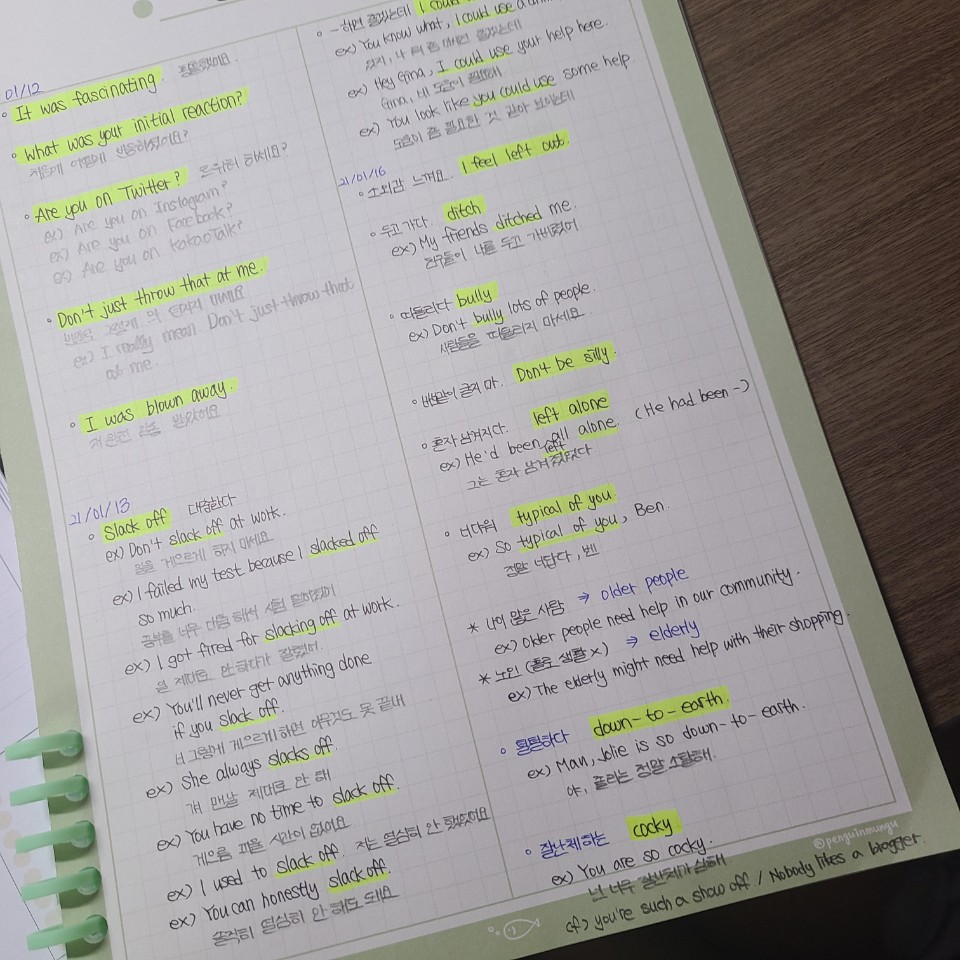 01/12
◦ It was fascinating. 흥미로웠어요.
◦ What was your initial reaction?
처음에 어떻게 반응하셨어요?
◦ Are you on Twitter? 트위터 하세요?
ex) Are you on Instagram?
ex) Are you on Facebook?
ex) Are you on KakaoTalk?
◦ Don't just throw that at me.
ex) I really mean. Don't just throw that
at me.
◦ I was blown away.
21/01/13
◦ Slack off 대충한다
ex) Don't slack off at work.
일을 게으르게 하지 마세요
ex) I failed my test because I slacked off
so much.
공부를 너무 대충 해서 시험 망쳤어
ex) I got fired for slacking off at work.
일 제대로 안 하다가 잘렸어.
ex) You'll never get anything done
if you slack off.
너 그렇게 게으르게 하면 아무것도 못 끝내
ex) She always slacks off.
걔 맨날 제대로 안 해
ex) You have no time to slack off.
게으름 피울 시간이 없어요
ex) I used to slack off. 저는 열심히 안 했었어요
ex) You can honestly slack off.
솔직히 열심히 안 해도 돼요
◦ -하면 좋겠는데 I could
ex) You know what, I could use a
ex) Hey Gina, I could use your help here.
Gina, 네 도움이 필요해
ex) You look like you could use some help.
도움이 좀 필요한 것 같아 보이는데
21/01/16
◦ 소외감 느껴요. I feel left out.
◦ 두고 가다. ditch
ex) My friends ditched me.
친구들이 나를 두고 가버렸어
◦ 괴롭히다 bully
ex) Don't bully lots of people.
사람들을 괴롭히지 마세요.
◦ 바보같이 굴지 마. Don't be silly.
◦ 혼자 남겨지다. left alone
ex) He'd been left all alone. (He had been -)
그는 혼자 남겨졌었다
◦ 너다워 typical of you
ex) So typical of you, Ben.
정말 너답다, 벤
* 나이 많은 사람 → older people
ex) Older people need help in our community.
* 노인 (홀로 생활 x) → elderly
ex) The elderly might need help with their shopping.
◦ 털털하다 down-to-earth.
ex) Man, Jolie is so down-to-earth.
야, 졸리는 정말 소탈해.
◦ 잘난체하는 cocky.
ex) You are so cocky.
넌 너무 잘난체가 심해
cf) you're such a show off / Nobody likes a bragger.
@penguinmungu